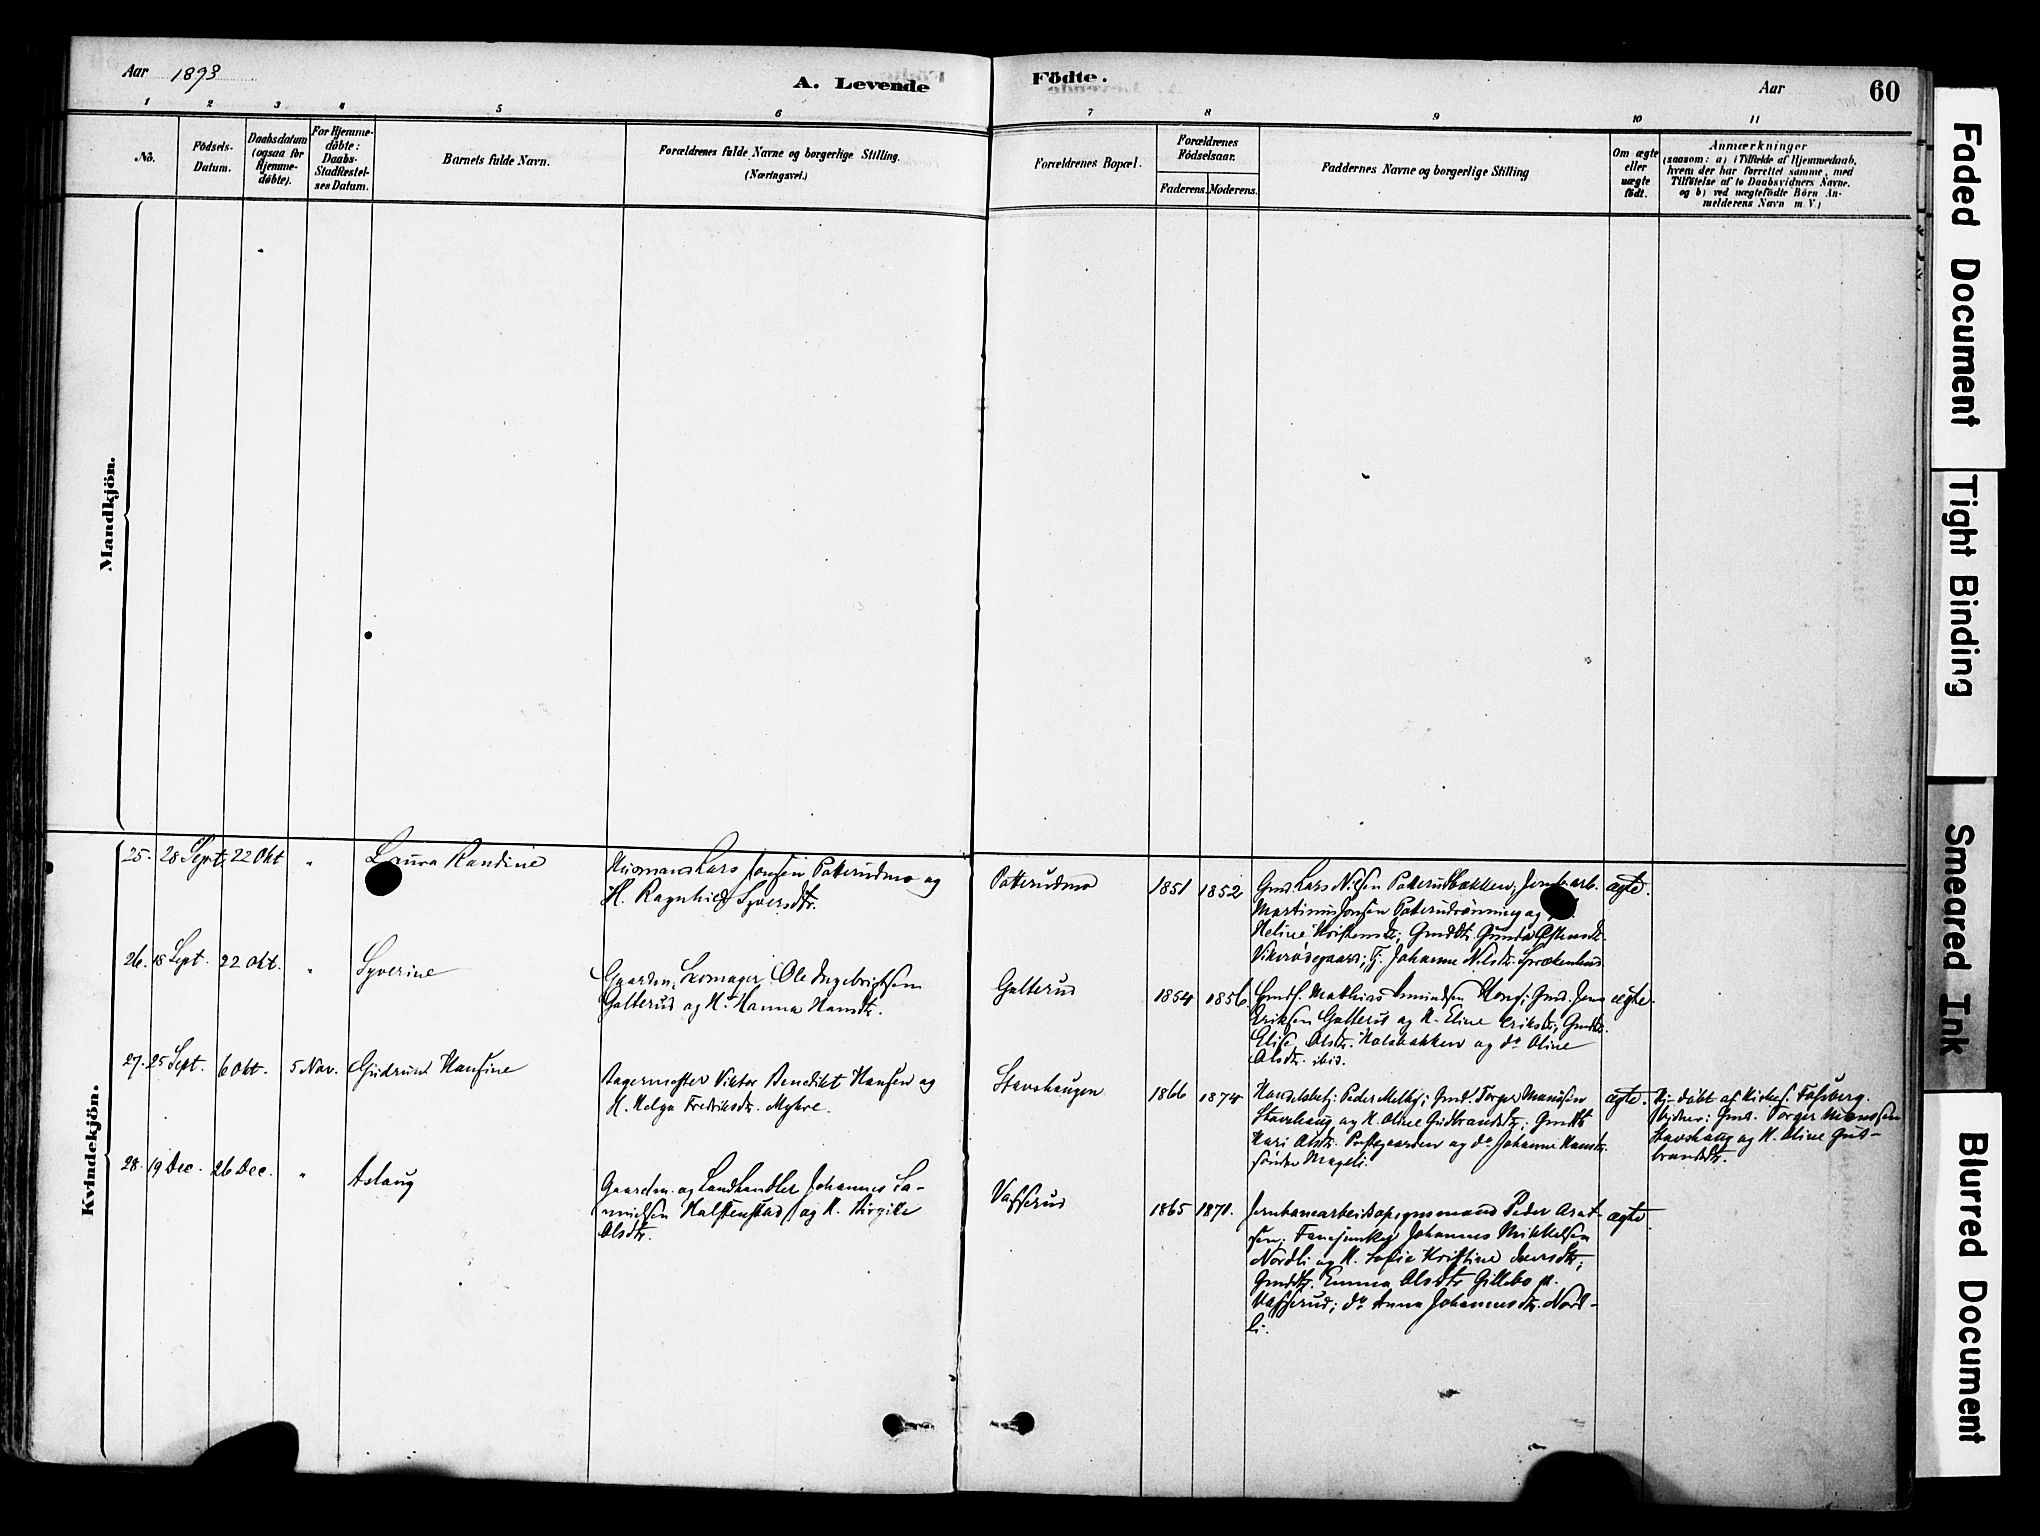 Aar 1893
A. Levende
Födte.
Aar
60
1
2
3
4
5
6
7
8
9
10
11
No.
Födsels-
Datum.
Daabsdatum
(ogsaa for
Hjemme-
döbte).
For Hjemme-
döbte:
Daabs-
Stadfæstel-
ses Datum.
Barnets fulde Navn.
Forældrenes fulde Navne og borgerlige Stilling.
(Næringsvei.)
Forældrenes Bopæl.
Forældrenes
Födselsaar.
Faderens.
Moderens.
Faddernes Navne og borgerlige Stilling
Om ægte
eller
uægte
födt.
Anmærkninger
(saasom: a) i Tilfælde af Hjemmedaab,
hvem der har forrettet samme, med
Tilföielse af to Daabsvidners Navne,
og b) ved uægtefödte Börn An-
melderens Navn m. V.)
Mandkjön.
Kvindekjön.
25. 28 Sept. 22 Okt " Laura Randine
Husmand Lars Jonsen Patterudmo og
H. Ragnhild Syversdtr.
Patterudmo
1851 1852
Gmd. Lars Nilsen Patterudbakken; Jernb.arb.
Martinus Jonsen Patterudrönning og
Heline Kristensdt; Gmddtr. Gunda
Johanne Nilsdtr.
ægte.
26. 18 Sept. 22 Okt. " Syverine
Gaardm. Skomager Ole Ingebrigtsen
Galterud og H. Hanna Hansdtr.
Galterud
1854 1856.
Gmds. Mathias Amundsen Gmd. Jens
Eriksen Galterud og H. Eline Eriksdtr; Gmddtr.
Elise Olsdtr. Holsbakken og do Oline
Olsdtr. ibid.
ægte.
27. 25 Sept. 6 Okt. 5 Nov. Gudrund Hansine
Bagermester Viktor Benedikt Hansen og
H. Helga Fredriksdtr. Myhre.
Stavshaugen
1866 1874
Handelsbetj. Peder Melby; Gmd. Torger
Stavshaug og H. Oline Gudbrandsdtr; Gmddtr
Kari Olsdtr. Prestegaarden og do Johanne Hansdtr.
söndre Mageli.
ægte.
Hj. döbt af Kirkes. Fossberg.
Vidner: Gmd. Torger
Stavshaug og H. Oline Gud-
brandsdtr.
28. 19 Dec. 26 Dec. " Aslaug
Gaardm. og Landhandler Johannes Sa-
muelsen Halstenstad og H. Birgitte
Olsdtr.
1865 1871.
Jernbanearbeidsopsynsmand Peder
sen; Fanejunker Johannes Mikkelsen
Nordli og H. Sofie Kristine Iversdtr;
Gmddtr. Emma Olsdtr Gillebo p.
do Anna Johannesdtr. Nord-
li.
ægte.
Faded Document
Tight Binding
Smeared Ink
Blurred Document